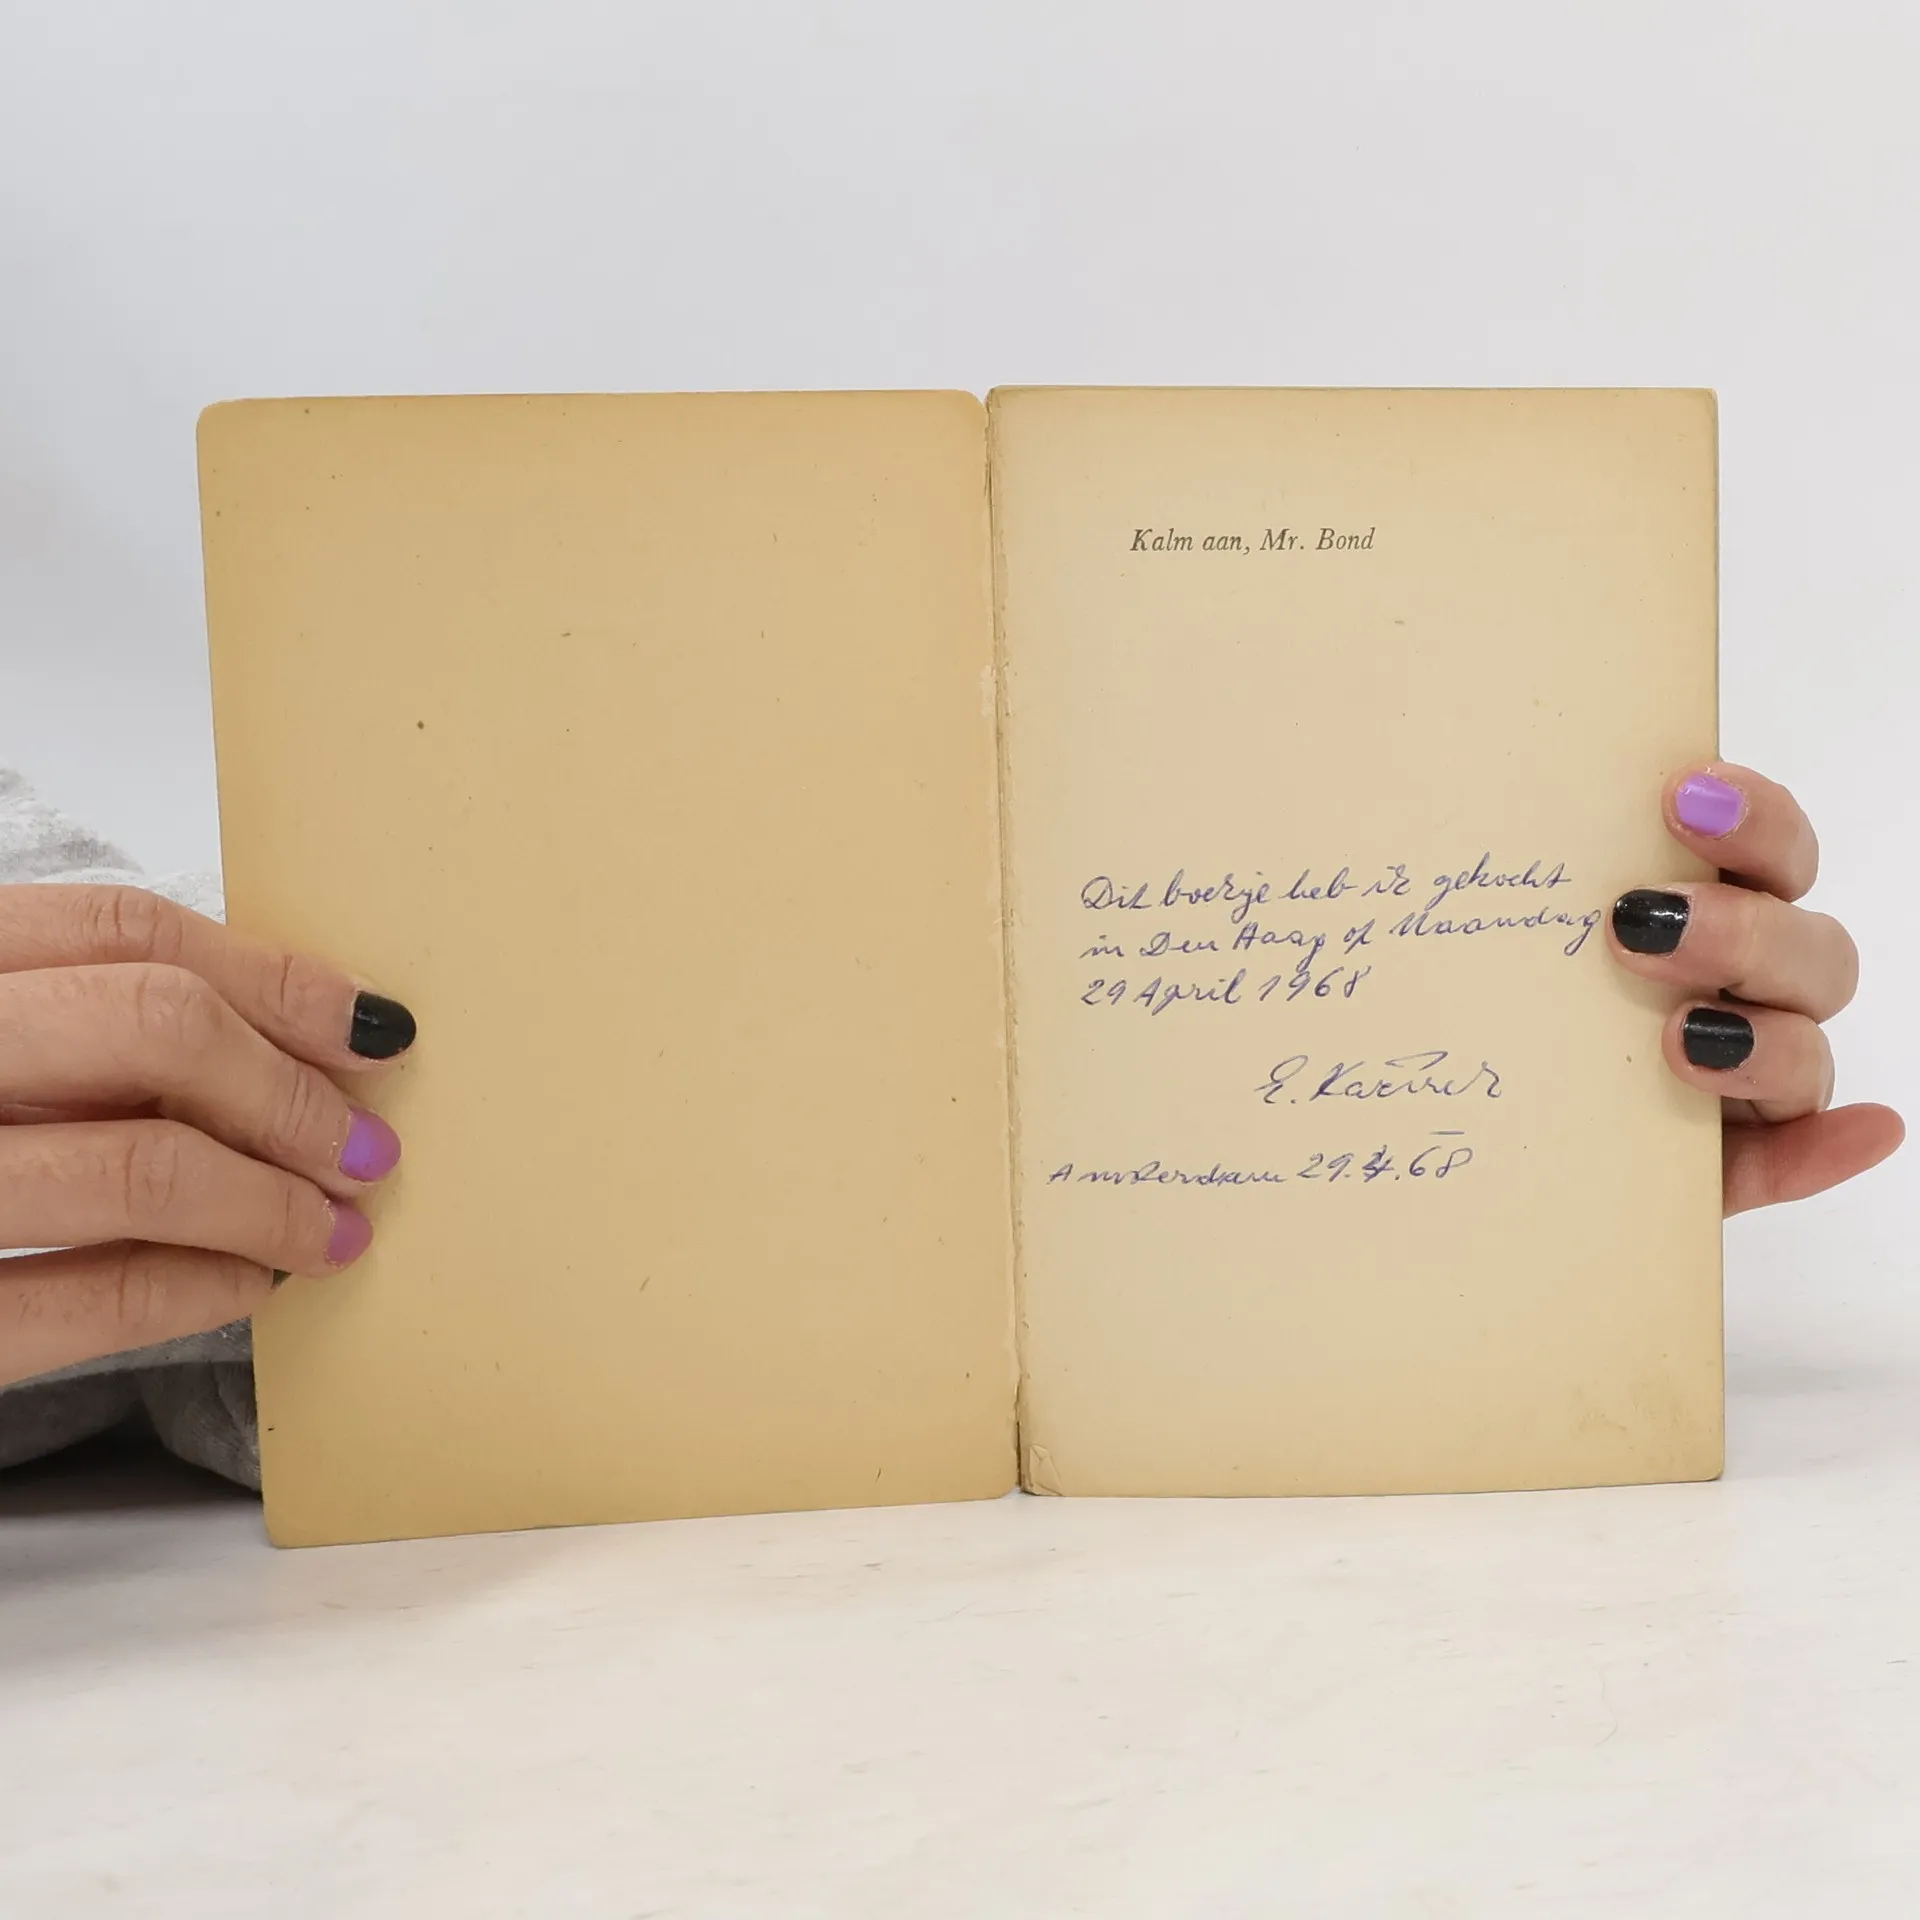 Kalm aan, Mr. Bond
Dit boekje heb ik gekocht
in Den Haag op Maandag
29 April 1968
E.
Amsterdam 29.4.68